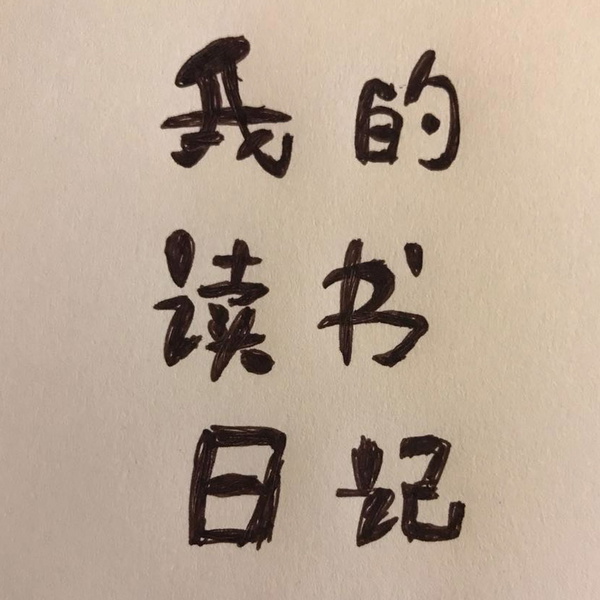 我的
读书
日记